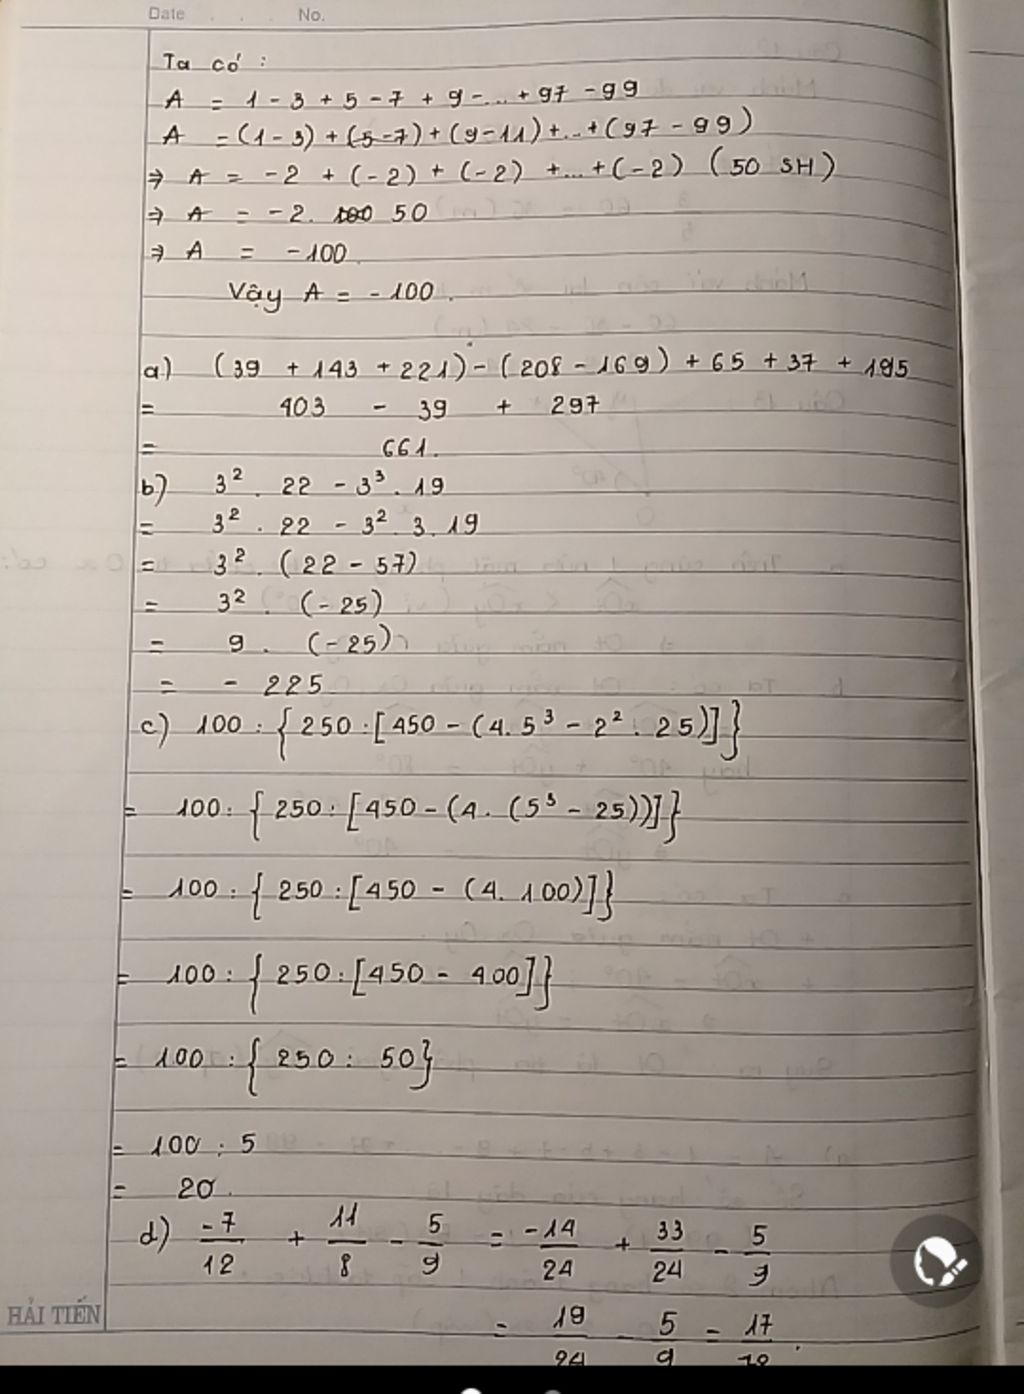 Date . . . No.
Ta có :
A = 1 - 3 + 5 - 7 + 9 - ... + 97 - 99
A = (1 - 3) + (5 - 7) + (9 - 11) + ... + (97 - 99)
⇒ A = -2 + (-2) + (-2) + ... + (-2) (50 SH)
⇒ A = -2. 50
⇒ A = -100.
Vậy A = -100.
a) (39 + 143 + 221) - (208 - 169) + 65 + 37 + 195
= 403 - 39 + 297
= 661.
b) 3² . 22 - 3³ . 19
= 3² . 22 - 3² . 3 . 19
= 3² . (22 - 57)
= 3² . (-25)
= 9 . (-25)
= - 225
c) 100 : { 250 : [450 - (4. 5³ - 2² . 25)]}
= 100 : { 250 : [450 - (4. (5³ - 25))]}
= 100 : { 250 : [450 - (4. 100)]}
= 100 : { 250 : [450 - 400]}
= 100 : { 250 : 50}
= 100 : 5
= 20.
d) -7/12 + 11/8 - 5/9 = -14/24 + 33/24 - 5/9
= 19/24 - 5/9 = 17/72.
HẢI TIẾN